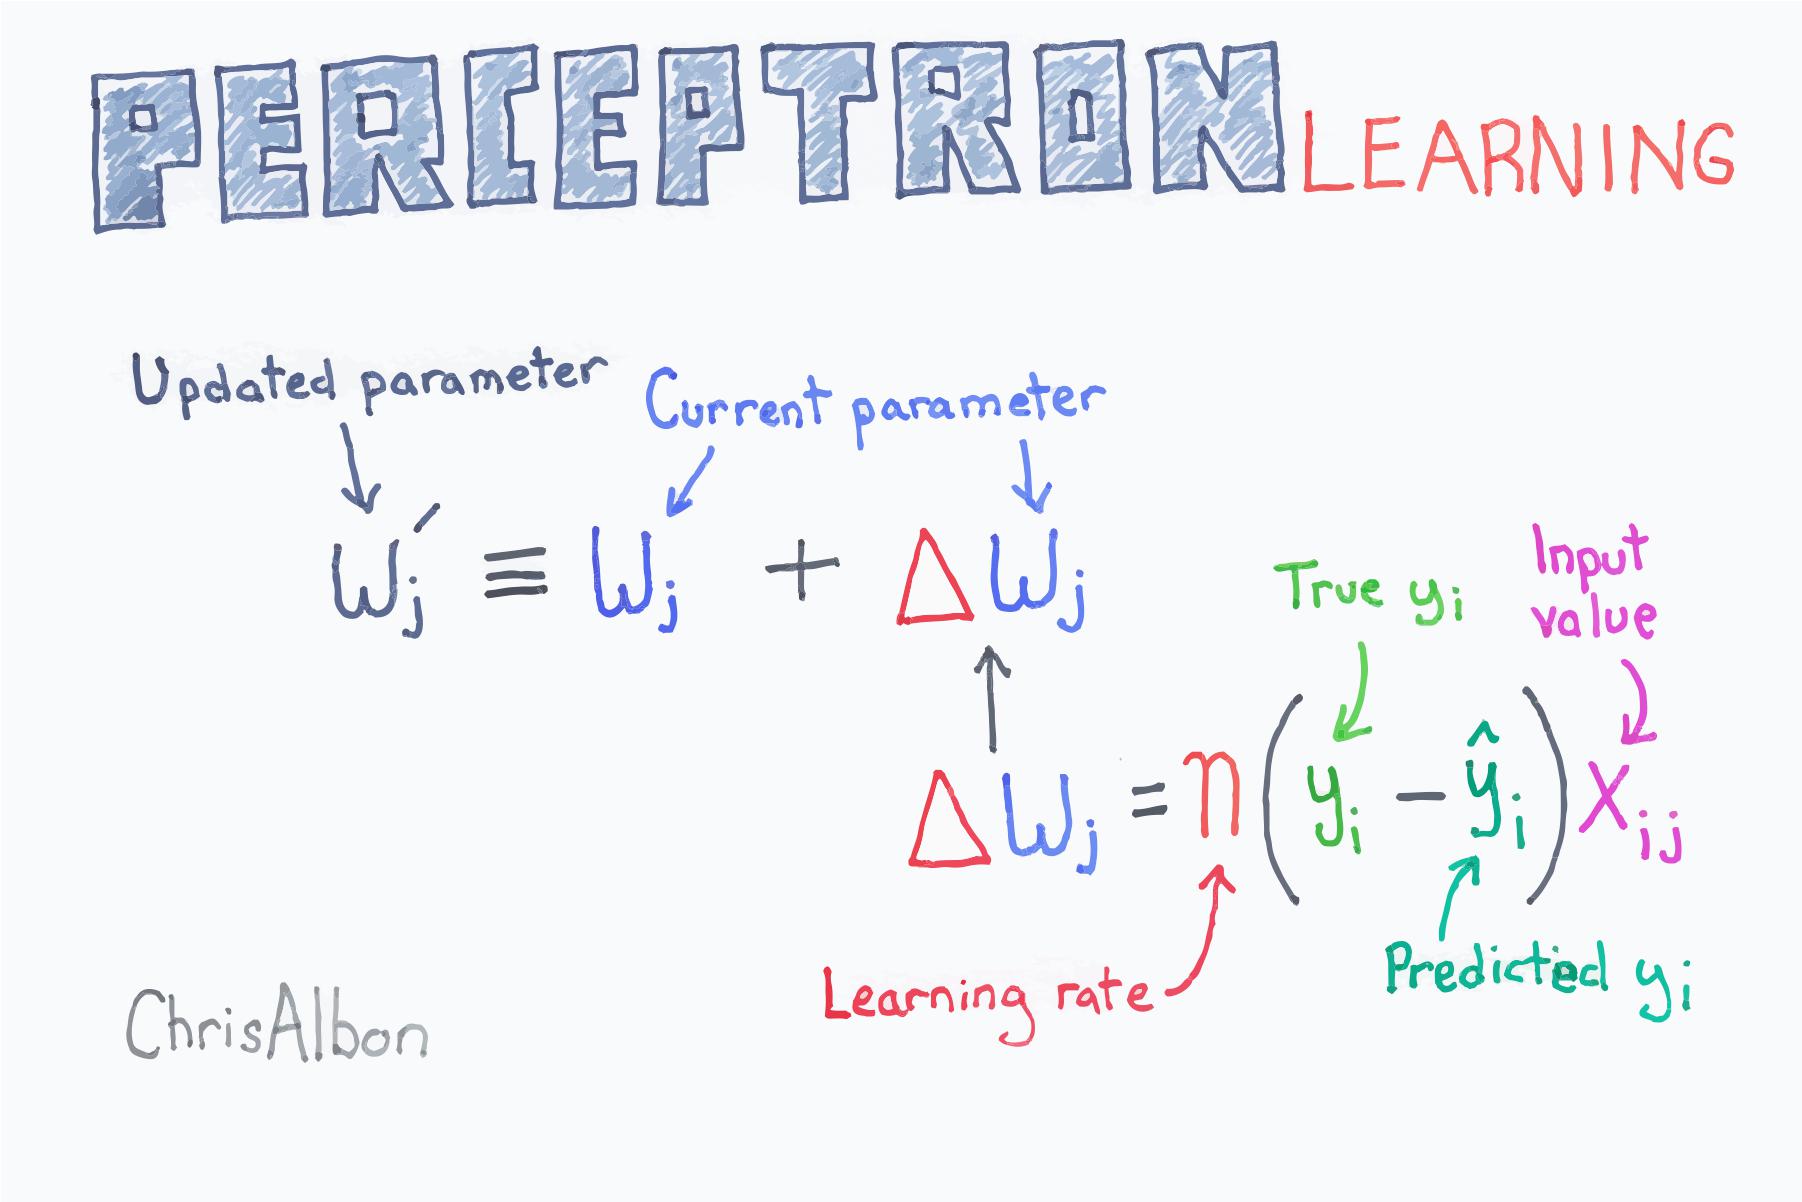 PERCEPTRON LEARNING
Updated parameter
Current parameter
wj′ ≡ wj + Δwj
True yi
Input
value
Δwj = η(yi − ŷi)xij
Learning rate
Predicted yi
ChrisAlbon